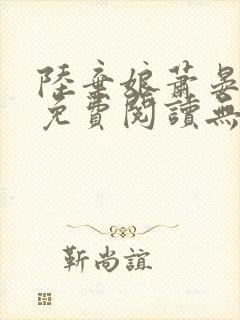 陸棄娘蕭晏
免費閱讀無
靳尚誼